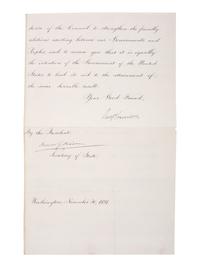 desire of the Council to strengthen the friendly
relations existing between our Governments and
Peoples, and to assure you that it is equally
the intention of the Government of the United
States to lend its aid to the attainment of
the same desirable result.
Your Good Friend,
By the President:
Secretary of State.
Washington, November 30, 1891.